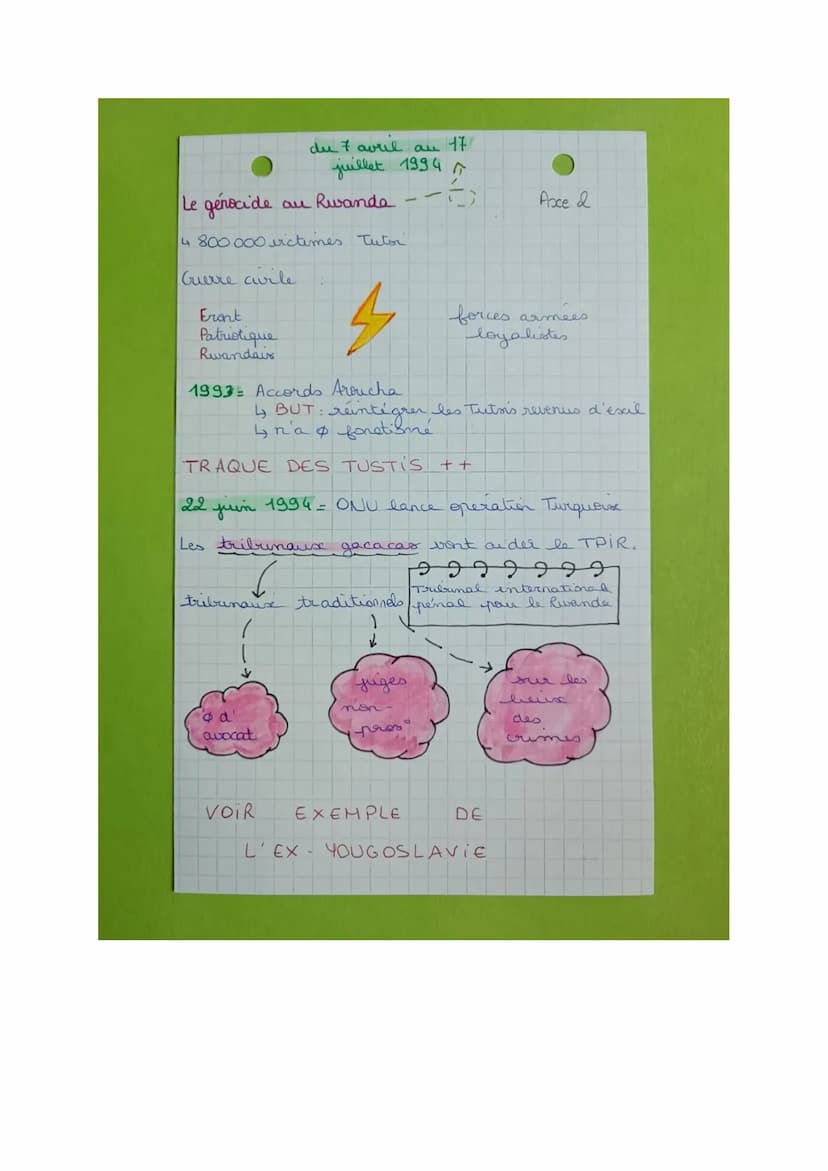 du 7 avril au 17
juillet 1994
Le génocide au Rwanda
Axe 2
↳ 800 000 victimes Tutsi
Guerre civile
Front
Patriotique
Rwandais
forces armées
loyalistes
1993 = Accords Aroucha
↳ BUT : réintégrer les Tutsis revenus d'exil
↳ n'a ø fonctionné
TRAQUE DES TUSTIS ++
22 juin 1994 = ONU lance opération Turquoise
Les tribunaux gacacas vont aider le TPIR.
tribunaux traditionnels
Tribunal international
pénal pour le Rwanda
ø d'
avocat
juges
non-
pros°
sur les
lieux
des
crimes
VOIR EXEMPLE DE
L'EX-YOUGOSLAVIE